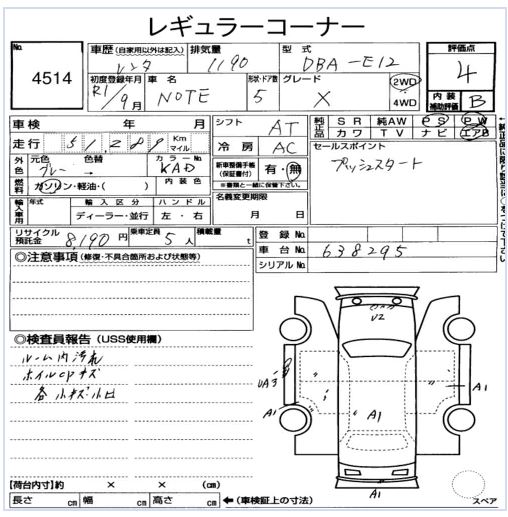 レギュラーコーナー
No. 4514
車歴 (自家用以外は記入) レンタ
排気量 1190
型式 DBA-E12
評価点 4
初度登録年月 R1/9月
車名 NOTE
形状・ドア数 5
グレード X
2WD
4WD
内装補助評価 B
車検 年 月
シフト AT
純正品 SR 純AW PS PW
カワ TV ナビ エアB
走行 51,289 Km マイル
冷房 AC
セールスポイント
プッシュスタート
外色 元色 グレー 色替 → カラーNo. KAD
新車整備手帳(保証書付) 有・無
※書類と一緒に保管下さい。
燃料 ガソリン・軽油・( ) 内装色
名義変更期限
月 日
輸入車用 年式 輸入区分 ハンドル
ディーラー・並行 左・右
リサイクル預託金 8,190円 乗車定員 5人 積載量 t
登録No.
車台No. 638295
シリアルNo.
◎注意事項 (修復・不具合箇所および状態等)
◎検査員報告 (USS使用欄)
ルーム内汚れ
ホイルcpキズ
各小キズ小凹
U2
UA3
A1
A1
A1
A1
スペア
【荷台内寸】約 × × (cm)
長さ cm 幅 cm 高さ cm ←(車検証上の寸法)